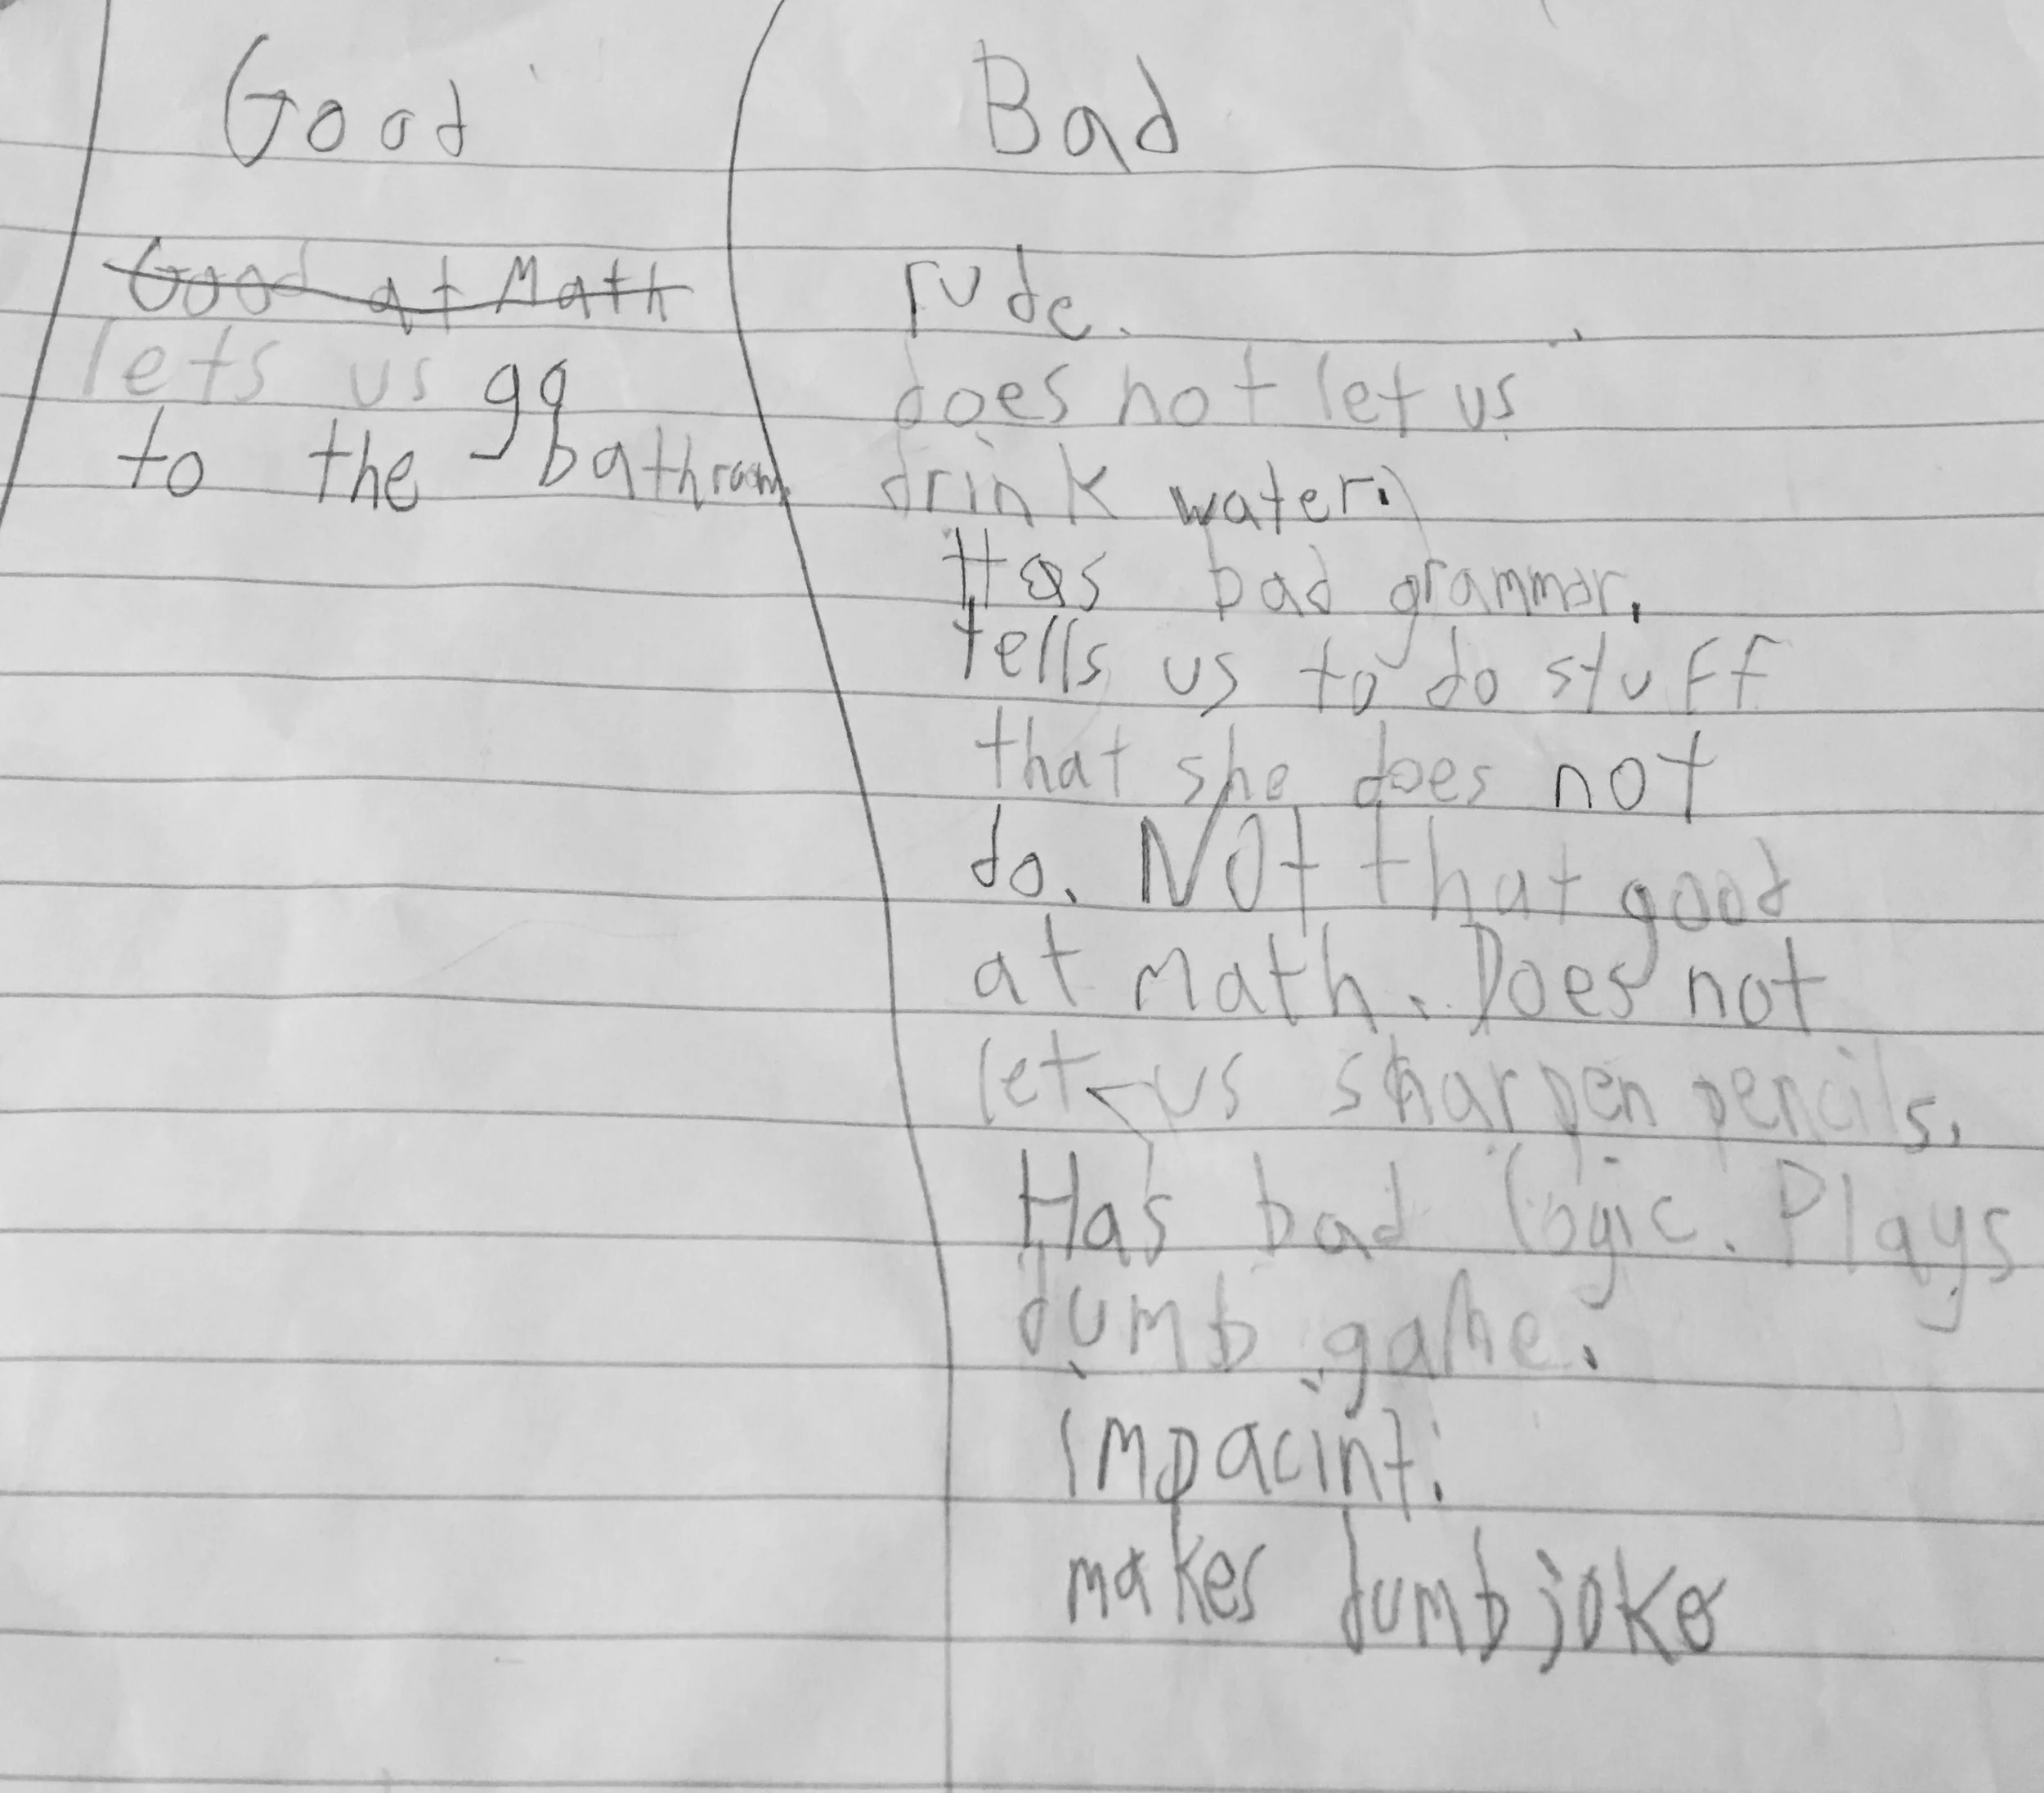 Good
Good at Math
lets us go
to the bathroom
Bad
rude.
does not let us
drink water.
Has bad grammar.
tells us to do stuff
that she does not
do. Not that good
at math. Does not
let us sharpen pencils.
Has bad logic. Plays
dumb game.
impacint.
makes dumb joke